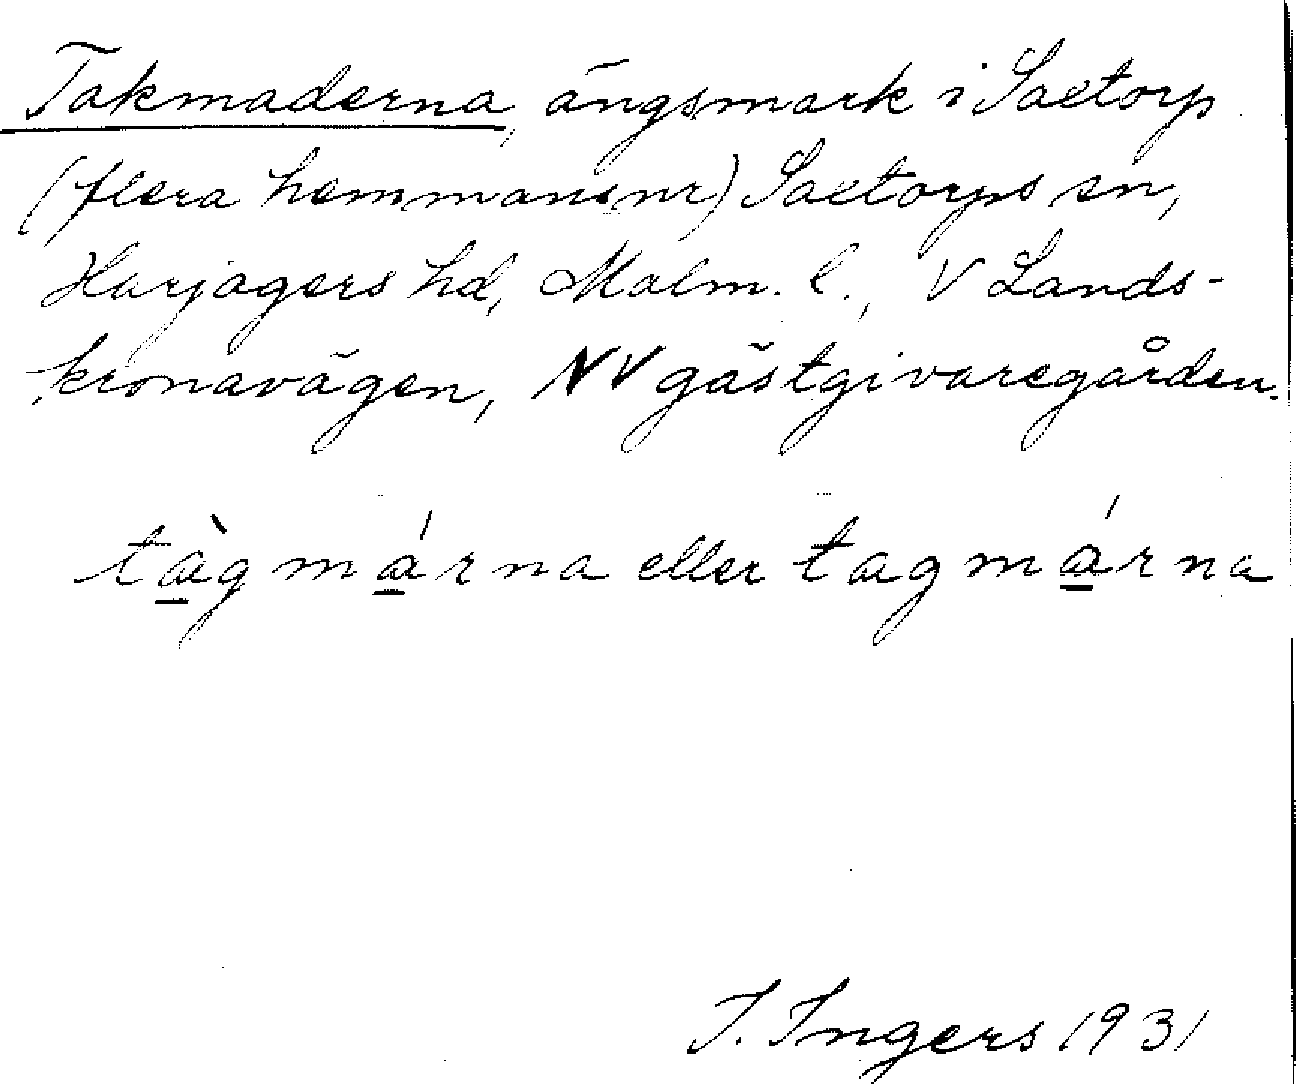 Takmaderna, ängsmark i Saxtorp
(flera hemmansnr) Saxtorps sn,
Harjagers hd, Malm. l., V Lands-
kronavägen, NV gästgivaregården.
tàgmárna eller tagmárna
I. Ingers 1931